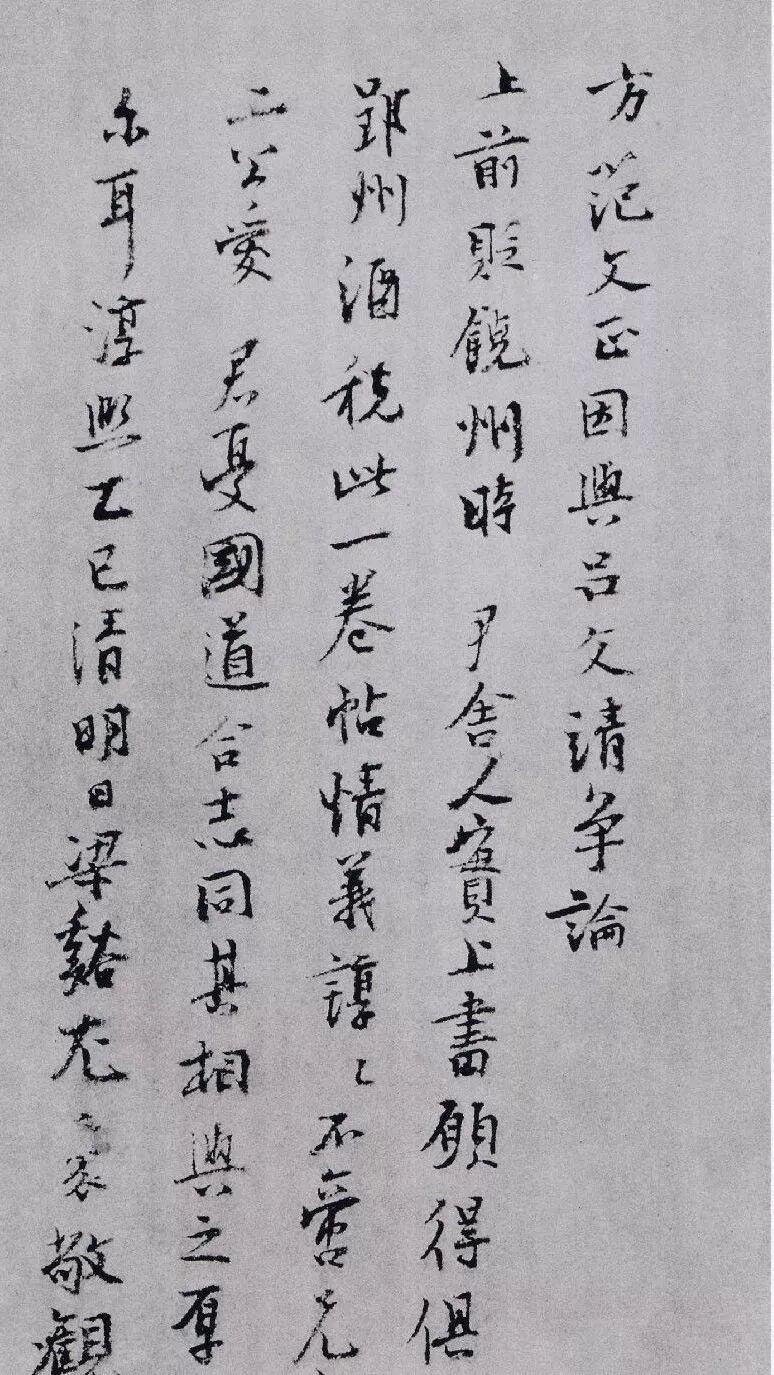 方范文正因與呂文靖爭論
上前貶饒州時 尹舍人實上書願得俱
郢州酒稅此一卷帖情義諄〻不啻兄
二公愛 君憂國道合志同其相與之厚
尔耳淳熙乙巳清明日梁谿尤袤敬觀